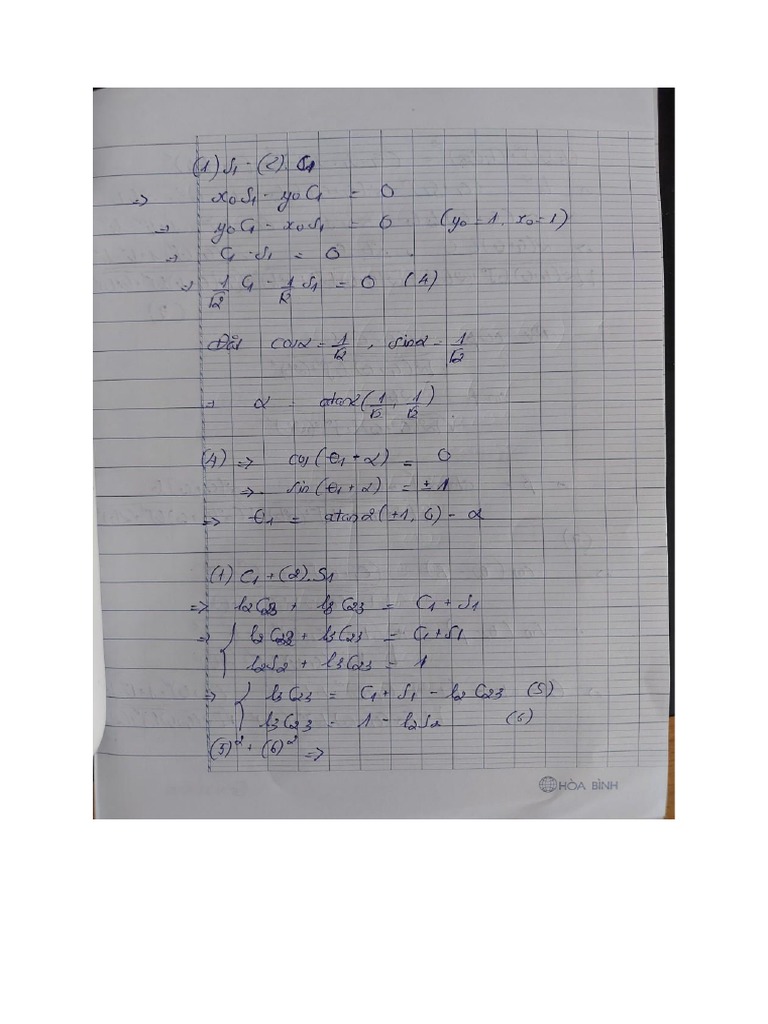 (1) S1 - (2). C1
=> x0S1 - y0C1 = 0
=> y0C1 - x0S1 = 0 (y0 = 1, x0 = 1)
=> C1 - S1 = 0
=> 1/√2 C1 - 1/√2 S1 = 0 (4)
Đặt cosα = 1/√2, sinα = 1/√2
=> α = atan2(1/√2, 1/√2)
(4) => cos(θ1 + α) = 0
=> sin(θ1 + α) = ±1
=> θ1 = atan2(±1, 0) - α
(1) C1 + (2). S1
=> l2C23 + l3C23 = C1 + S1
=> { l2C22 + l3C23 = C1 + S1
l2S2 + l3C23 = 1
=> { l3C23 = C1 + S1 - l2C23 (5)
l3C23 = 1 - l2S2 (6)
(5)² + (6)² =>
HÒA BÌNH